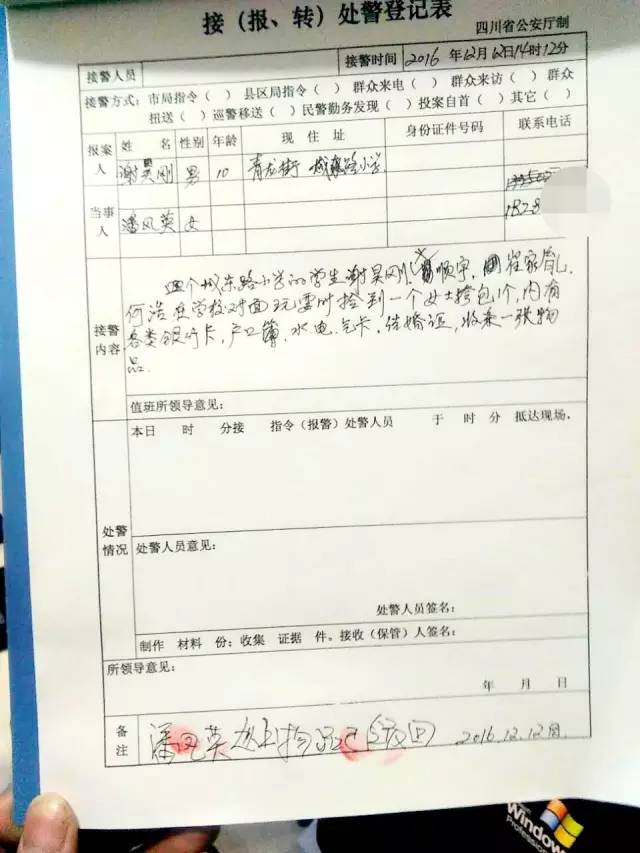 接（报、转）处警登记表
四川省公安厅制
接警人员 接警时间 2016年12月12日14时12分
接警方式：市局指令（ ）县区局指令（ ）群众来电（ ）群众来访（ ）群众
扭送（ ）巡警移送（ ）民警勤务发现（ ）投案自首（ ）其它（ ）
报案人 姓名 性别 年龄 现住址 身份证件号码 联系电话
谢昊刚 男 10 青龙街 城东路小学
当事人
潘凤英 女 1828
接警内容
四个城东路小学的学生谢昊刚、顺宇、崔家胤、
何浩在学校对面玩耍时捡到一个女士挎包1个，内有
各类银行卡，户口簿、水电气卡，结婚证，收来一张物
品.
值班所领导意见：
处警情况
本日 时 分接 指令（报警）处警人员 于 时 分 抵达现场，
处警人员意见：
处警人员签名：
制作 材料 份；收集 证据 件。接收（保管）人签名：
所领导意见：
年 月 日
备注
潘凤英 以上物品已全收回 2016.12.12
Windows
Professional